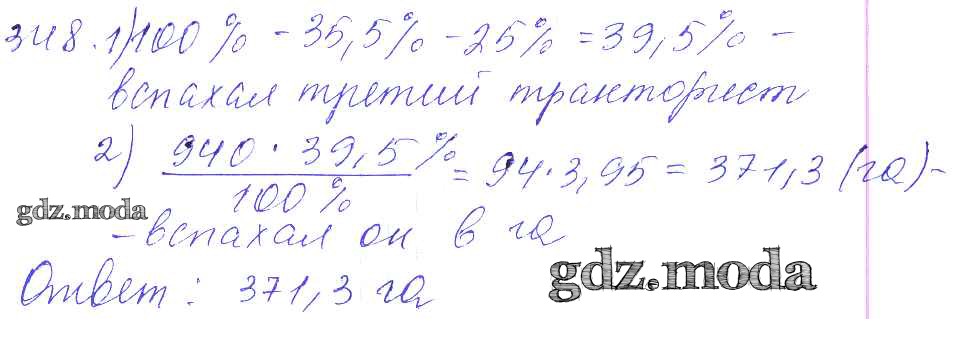 348. 1) 100% - 35,5% - 25% = 39,5% -
вспахал третий тракторист
2) 940 · 39,5% / 100% = 94 · 3,95 = 371,3 (га) -
gdz.moda
- вспахал он в га
gdz.moda
Ответ: 371,3 га